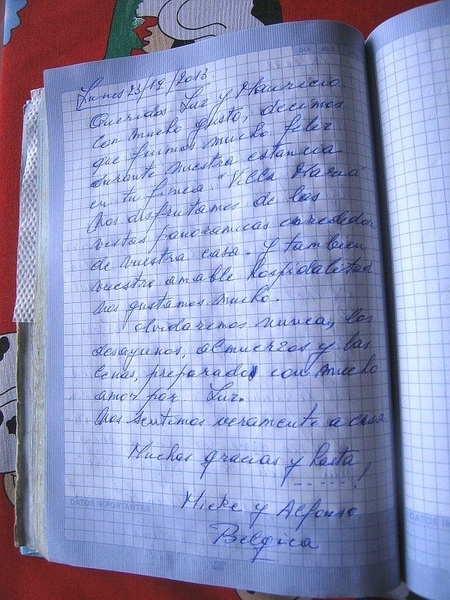 DIA MES
Lunes 23/12/2013.
Queridos Luz y Mauricio
con mucho gusto, decimos
que fuimos mucho feliz
durante nuestra estancia
en tu finca. "Villa Maria"
Nos disfrutamos de las
vistas panoramicas enrededor
de vuestra casa. y tambien
vuestro amable hospidalitad
nos gustamos mucho.
olvidaremos nunca, los
desayunos, almuerzos y las
cenas, preparado con mucho
amor por Luz.
Nos sentimos veramente a casa
Muchas gracias y hasta
......!
Micke y Alfonso
Belgica
DATOS IMPORTANTES